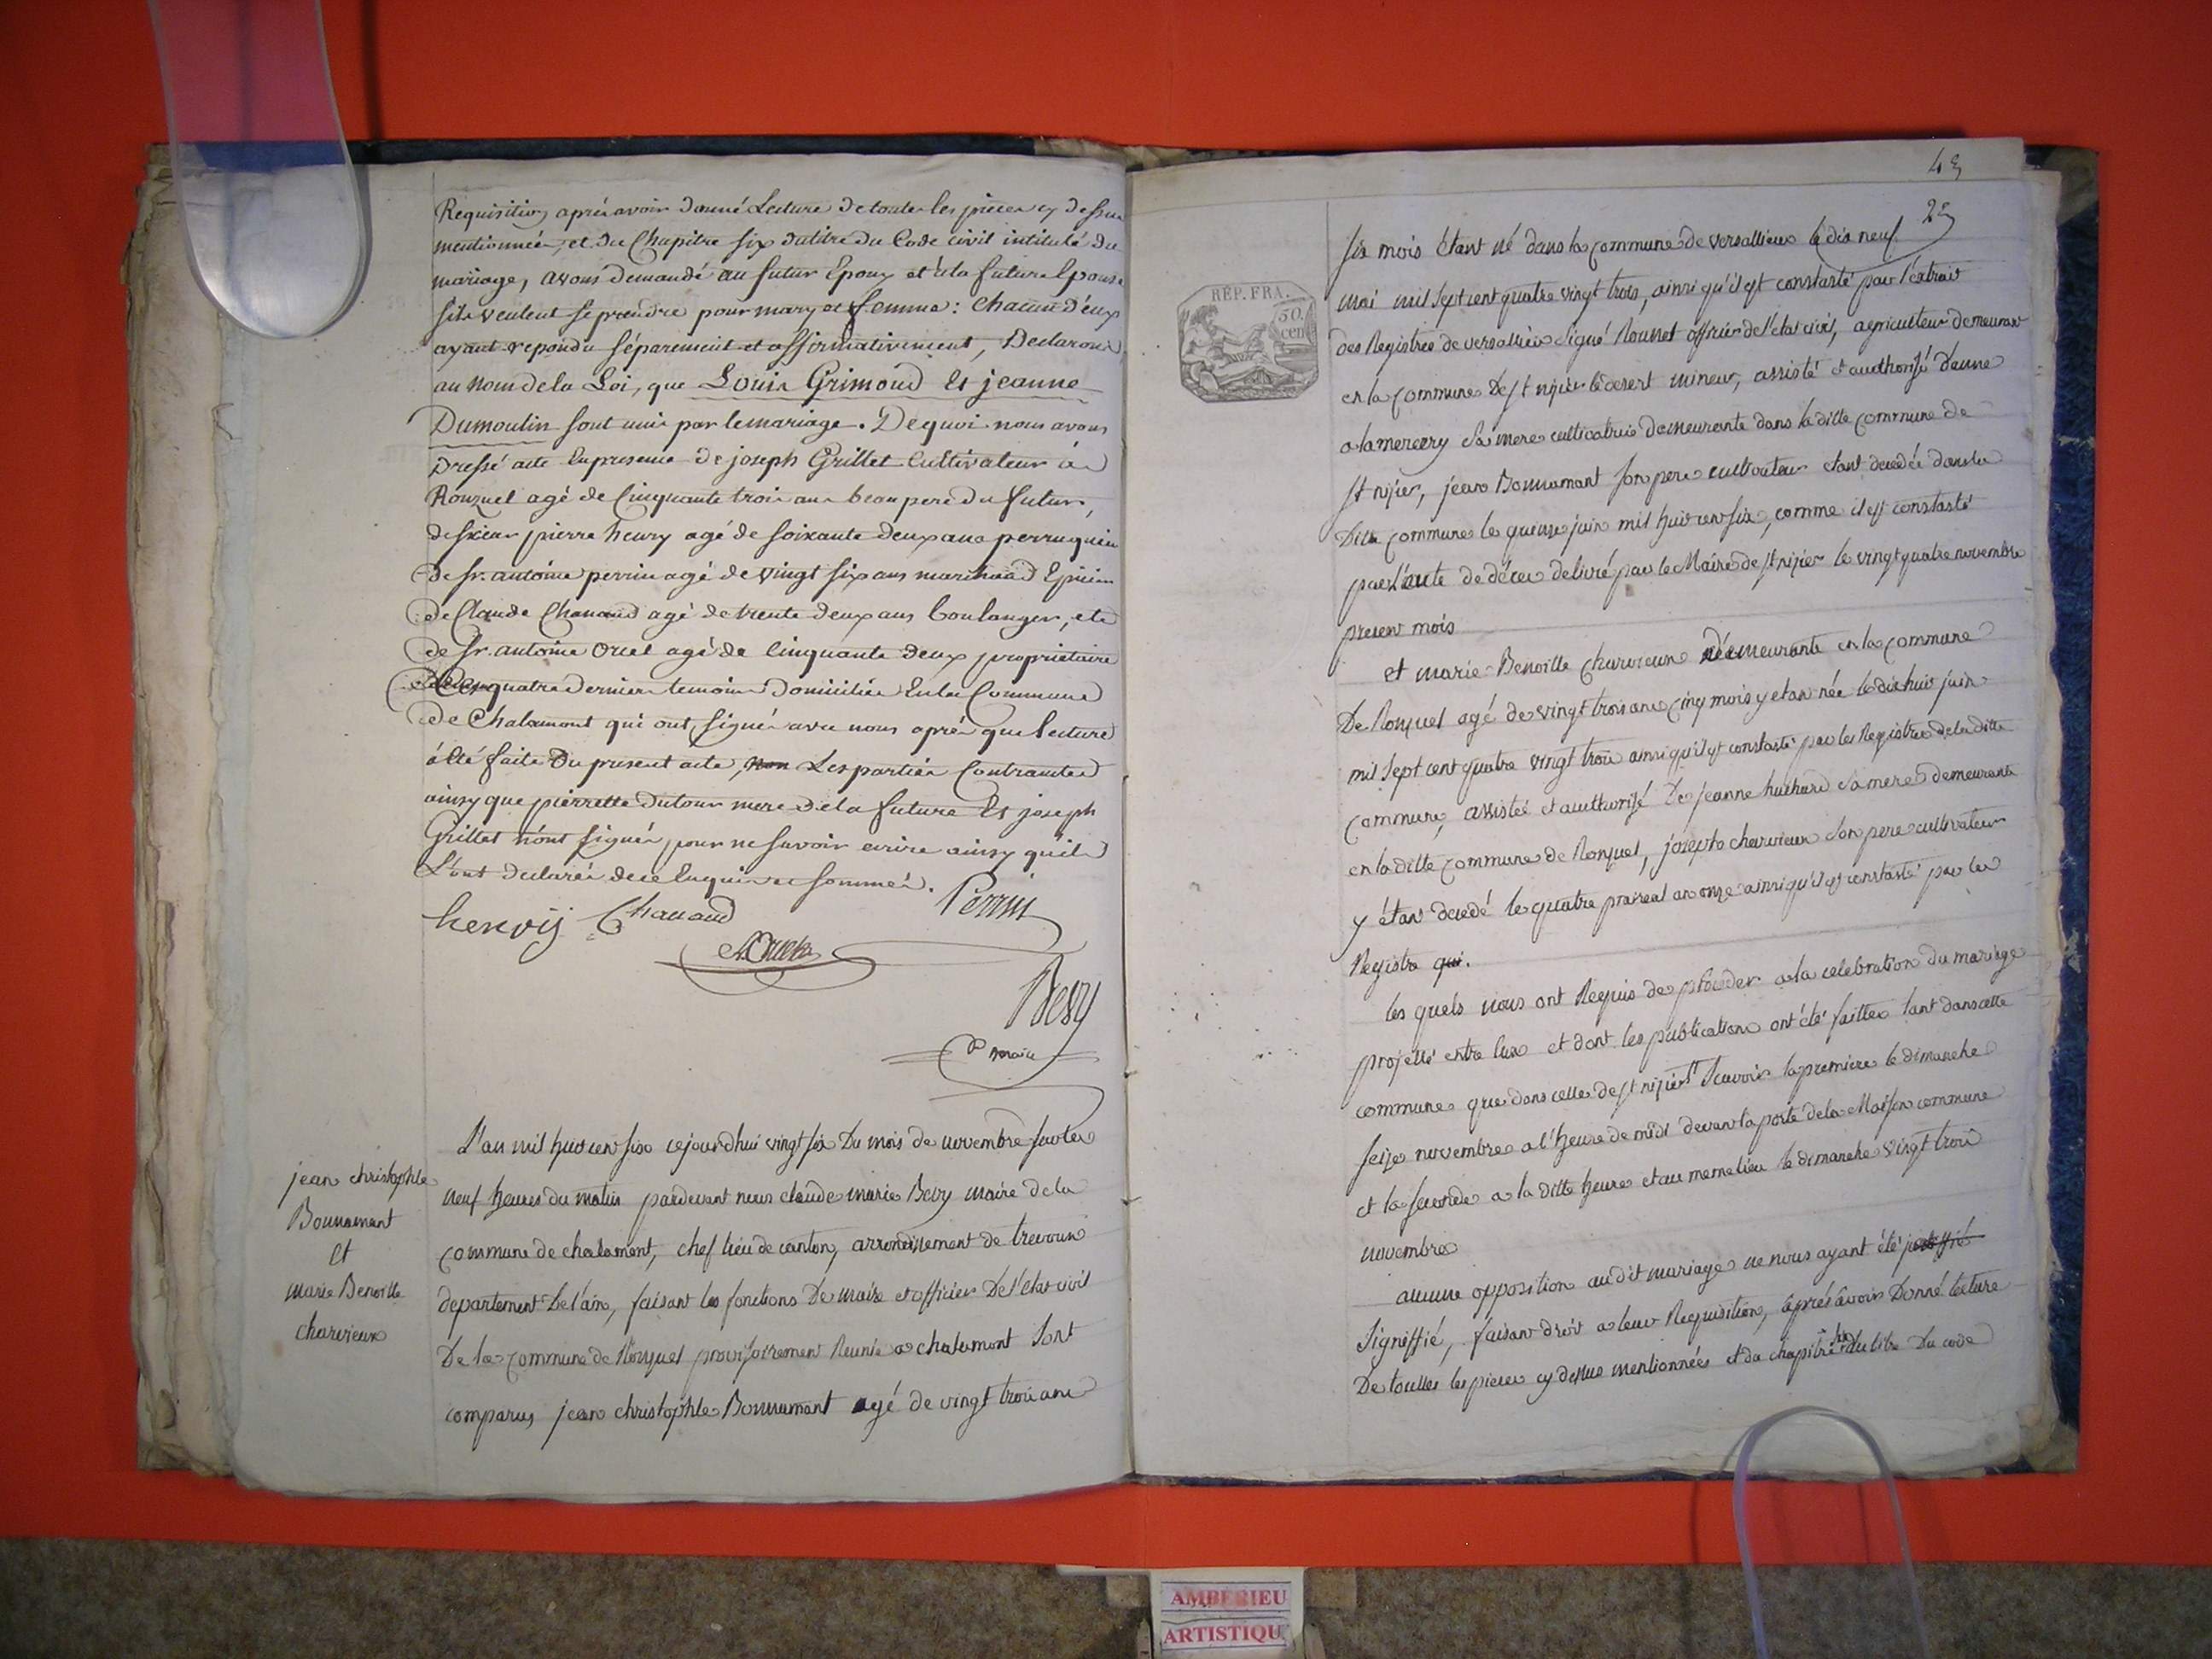 Requisition, après avoir donné Lecture de toutes les pièces cy dessus
mentionnées, et du Chapitre six du titre du Code civil intitulé du
mariage, avons demandé au futur Epoux et à la future Epouse
s'ils veulent se prendre pour mary et femme : chacun d'eux
ayant repondu séparement et affirmativement, Declarons
au nom de la Loi, que Louis Grimoud Et jeanne
Dumoulin sont unis par le mariage. De quoi nous avons
Dressé acte En presence de joseph Grillet Cultivateur à
Ronzuel agé de Cinquante trois ans beau pere du futur,
de sieur pierre henry agé de soixante deux ans perruquier
de sr. antoine perrin agé de vingt six ans marchand Epicier
de Claude Chanaud agé de trente deux ans boulanger, et
de sr. antoine Orcel agé de Cinquante deux proprietaire
quatre derniers temoins Domiciliés En la Commune
de Chalamont qui ont signés avec nous après que lecture
a été faite Du present acte, non Les parties Contractantes
ainsy que pierrette Dutour mere de la future Et joseph
Grillet n'ont signés pour ne savoir ecrire ainsy qu'ils
L'ont declarés de ce Enquis et sommés.
henry Chanaud Perrin
Orcel
Bevy
maire
jean christophle
Bonnamant
Et
marie Benoitte
charvieux
L'an mil huit cent six cejourdhui vingt six Du mois de novembre sur les
neuf heures du matin pardevant nous claude marie Bevy maire de la
commune de chalamont, chef lieu de canton, arrondissement de trevoux
departement De l'ain, faisant les fonctions De maire et officier De l'etat civil
De la commune de Ronzuel provisoirement Reunie a chalamont sont
comparus jean christophle Bonnamant agé de vingt trois ans
43
25
six mois étant né dans la commune de versallieux le dix neuf
mai mil sept cent quatre vingt trois, ainsi qu'il est constasté par l'extrait
des Registres de versallieux signé Rousset officier de l'etat civil, agriculteur demeurant
en la commune De st nizier le desert mineur, assisté et authorisé d'anne
alamercery sa mere cultivatrice demeurante dans la ditte commune de
st nizier, jean Bonnamant son pere cultivateur etant decedé dans la
Ditte commune le quinze juin mil huit cent six, comme il est constasté
par l'acte de déces delivré par le Maire de st nizier le vingt quatre novembre
present mois
et marie Benoitte charvieux demeurante en la commune
De Ronzuel agé de vingt trois ans cinq mois y etant née le dix huit juin
mil sept cent quatre vingt trois ainsi qu'il est constasté par les Registres de la ditte
commune, assistée et authorisé De jeanne huchard sa mere demeurante
en la ditte commune de Ronzuel, joseph charvieux son pere cultivateur
y étant decedé le quatre prairial an onze ainsi qu'il est constasté par les
Registre qui.
les quels nous ont Requis de proceder a la celebration du mariage
projetté entre eux et dont les publications ont été faittes tant dans cette
commune que dans celle de st nizier scavoir la premiere le dimanche
seize novembre a l'heure de midi devant la porte de la Maison commune
et la seconde a la ditte heure et au meme lieu le dimanche vingt trois
novembre
aucune opposition audit mariage ne nous ayant été
signiffié, faisant droit a leur Requisition, après avoir Donné lecture
De touttes les pieces cy dessus mentionnées et du chapitre six du titre Du code
RÉP. FRA.
50.
cen
AMBERIEU
ARTISTIQU